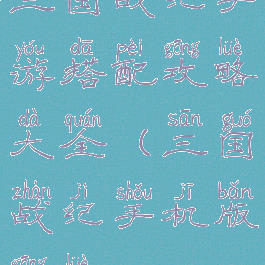 三国战纪手
yóu dā pèi gōng lüè
游搭配攻略
dà quán sān guó
大全（三国
zhàn jì shǒu jī bǎn
战纪手机版
gōng lüè